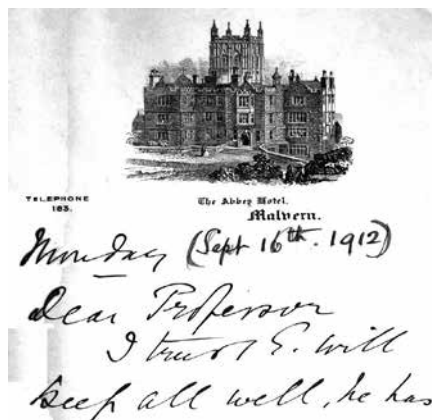 TELEPHONE
183.
The Abbey Hotel.
Malvern.
Monday (Sept 16th. 1912)
Dear Professor
I trust E. will
keep all well, he has